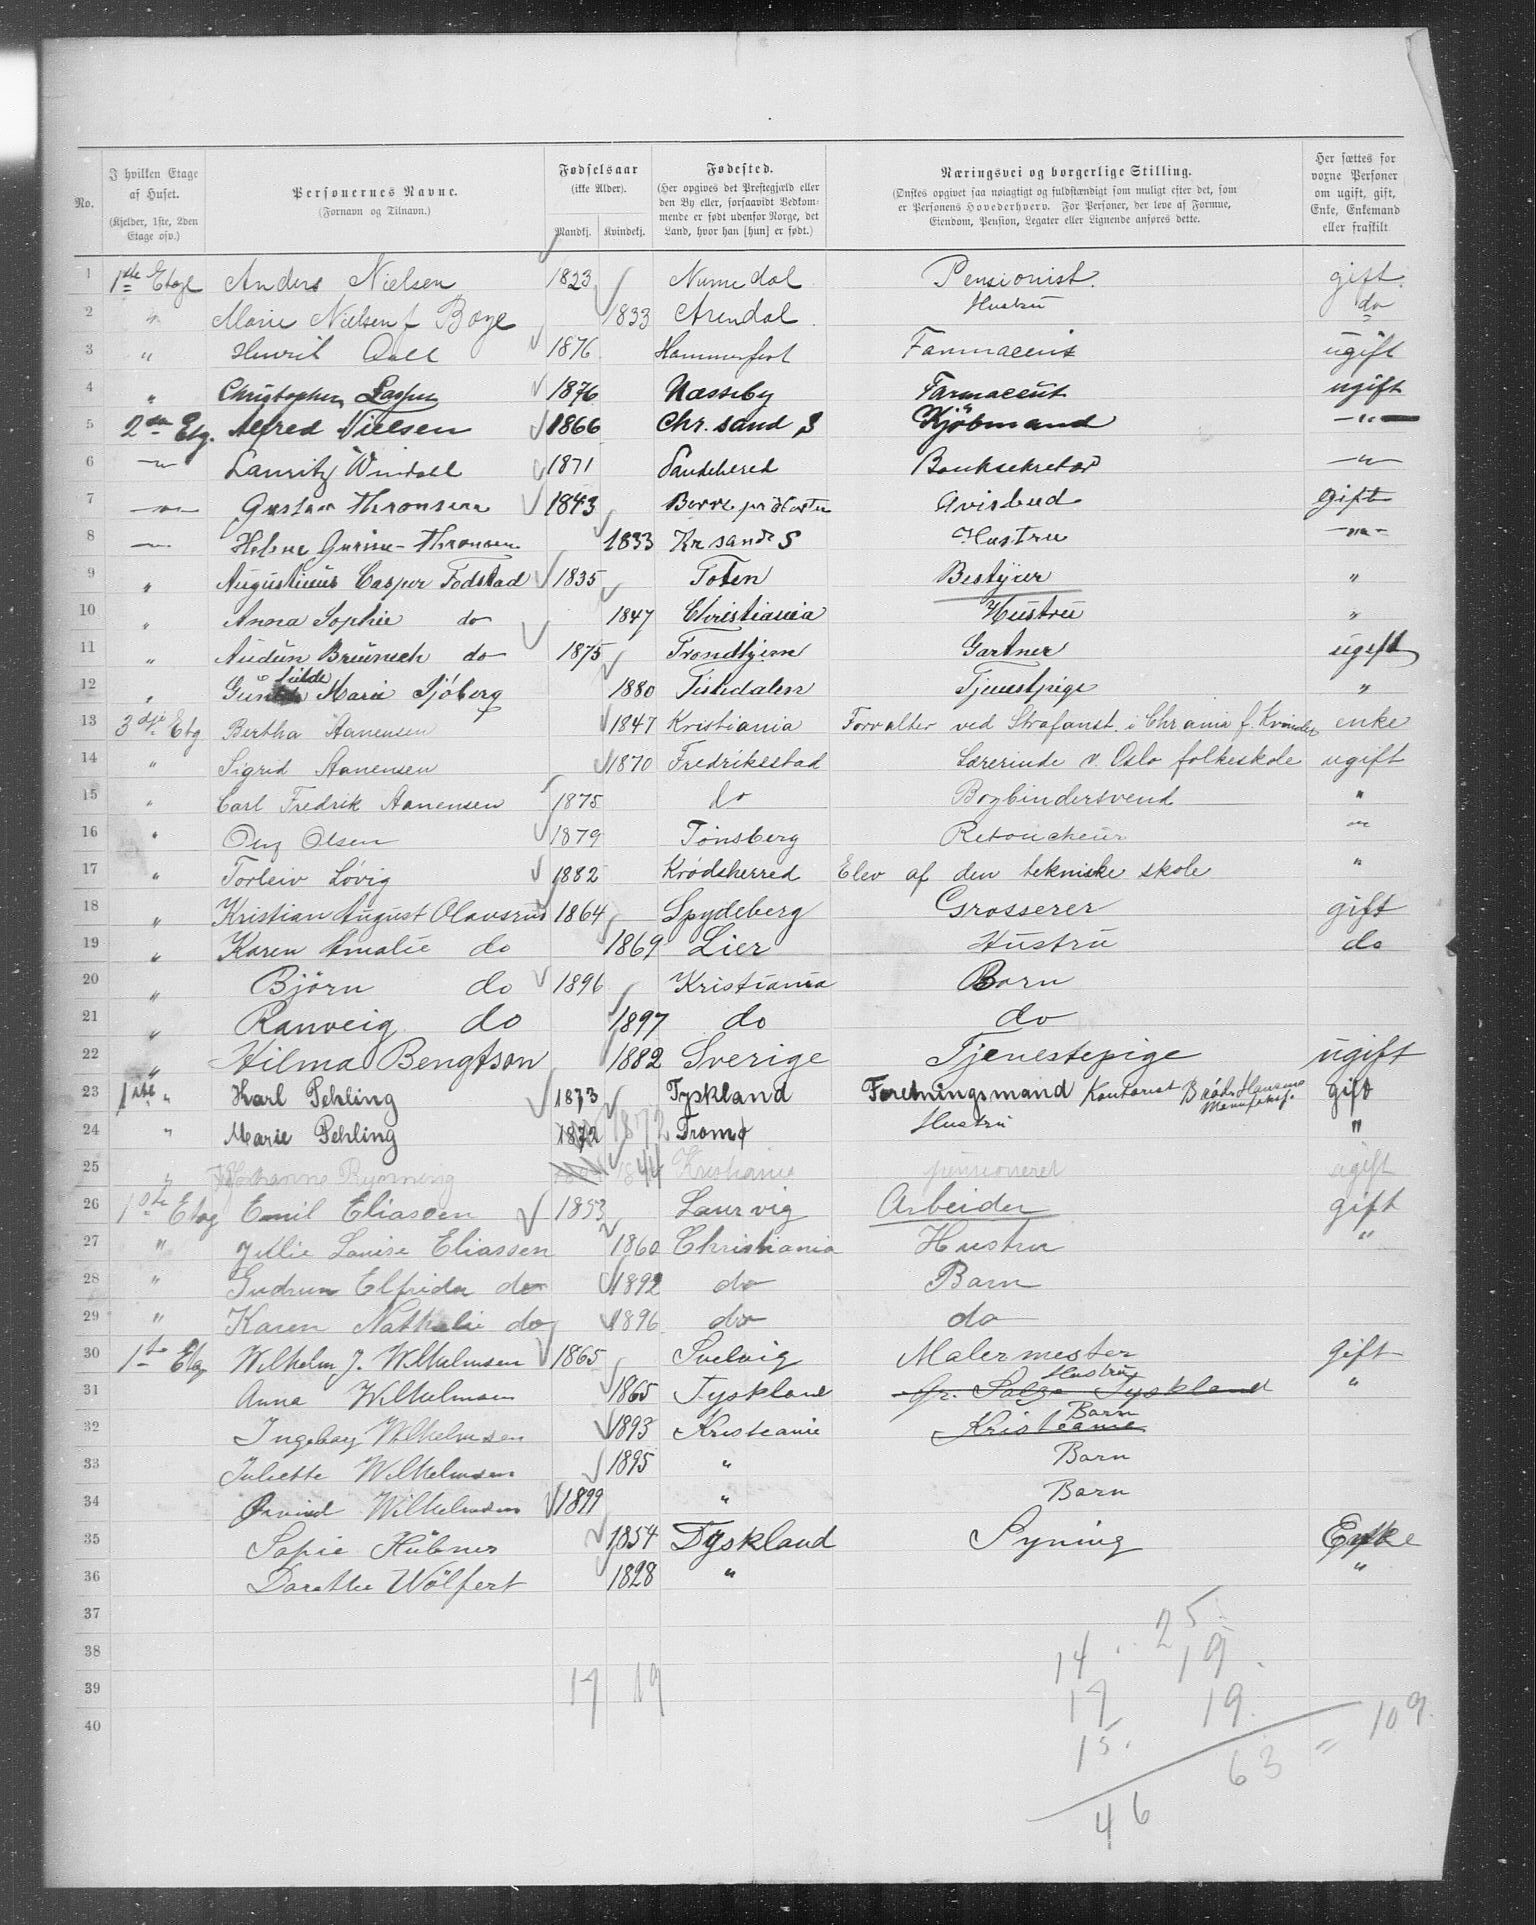 No. | I hvilken Etage af Huset. (Kjelder, 1ste, 2den Etage osv.) | Personernes Navne. (Fornavn og Tilnavn.) | Fødselsaar (ikke Alder). Mandkj. Kvindekj. | Fødested. (Her opgives det Prestegjæld eller den By eller, forsaavidt Vedkommende er født udenfor Norge, det Land, hvor han [hun] er født.) | Næringsvei og borgerlige Stilling. (Ønskes opgivet saa nøiagtigt og fuldstændigt som muligt efter det, som er Personens Hovederhverv. For Personer, der leve af Formue, Eiendom, Pension, Legater eller Lignende anføres dette.) | Her sættes for voxne Personer om ugift, gift, Enke, Enkemand eller fraskilt
1 1ste Etage Anders Nielsen 1823 Numedal Pensionist. gift.
2 " Marie Nielsen f Boye 1833 Arendal Hustru do
3 " Henrik 1876 Hammerfest Farmaceut ugift
4 " Christopher 1876 Næsseby Farmaceut ugift
5 2den Etg. Alfred Nielsen 1866 Chr.sand S Kjöbmand —"—
6 —"— Lauritz Windall 1871 Sandeherred Banksekretær —"—
7 —"— Gustav Thronsen 1843 Borre pr Horten Avisbud Gift
8 —"— Helene Gurine Thronsen 1833 Kr sand S Hustru —"—
9 " Augustinus Casper Fodstad 1835 Toten Bestyrer "
10 " Anna Sophie do 1847 Christiania Hustru "
11 " Audun Brünech do 1875 Trondhjem Gartner ugift
12 " Gunhilde Marie Sjöberg 1880 Tistedalen Tjenestpige "
13 3dje Etg Bertha Aanensen 1847 Kristiania Forvalter ved Strafanst. i Chrania f. Kvinder enke
14 " Sigrid Aanensen 1870 Fredrikstad Lærerinde v. Oslo folkeskole ugift
15 " Carl Fredrik Aanensen 1875 do Bogbindersvend "
16 " Olsen 1879 Tönsberg Retoucheur "
17 " Torleiv Lövig 1882 Krödsherred Elev af den tekniske skole "
18 " Kristian August Olavsrud 1864 Spydeberg Grosserer gift
19 " Karen Amalie do 1869 Lier Hustru do
20 " Björn do 1896 Kristiania Barn
21 " Ranveig do 1897 do do
22 " Hilma Bengtson 1882 Sverige Tjenestepige ugift
23 1ste " Karl Pehling 1873 Tyskland Foretningsmand Kontorist Brödr. Hansens Manufakf. gift
24 " Marie Pehling 1872 1872 Tromö Hustru "
25 " Johanne Rynning 1844 Kristiania pensioneret ugift
26 1ste Etag Emil Eliassen 1853 Laurvig Arbeider gift
27 " Jullie Louise Eliassen 1860 Christiania Hustru "
28 " Gudrun Elfrida do 1892 do Barn
29 " Karen Nathalie do 1896 do do
30 1ste Etg Wilhelm J. Wilhelmsen 1865 Svelvig Malermester gift
31 Anna Wilhelmsen 1865 Tyskland Gr. Salze Tyskland Hustru "
32 Ingeborg Wilhelmsen 1893 Kristiania Kristiania Barn
33 Juliette Wilhelmsen 1895 " Barn
34 Øivind Wilhelmsen 1899 " Barn
35 Sofie Hübner 1854 Tyskland Syning Enke
36 Dorothe Wölfert 1828 " "
37
38
39 17 19
40
14 . 25.
17 19.
15. 19.
46 63 = 109.